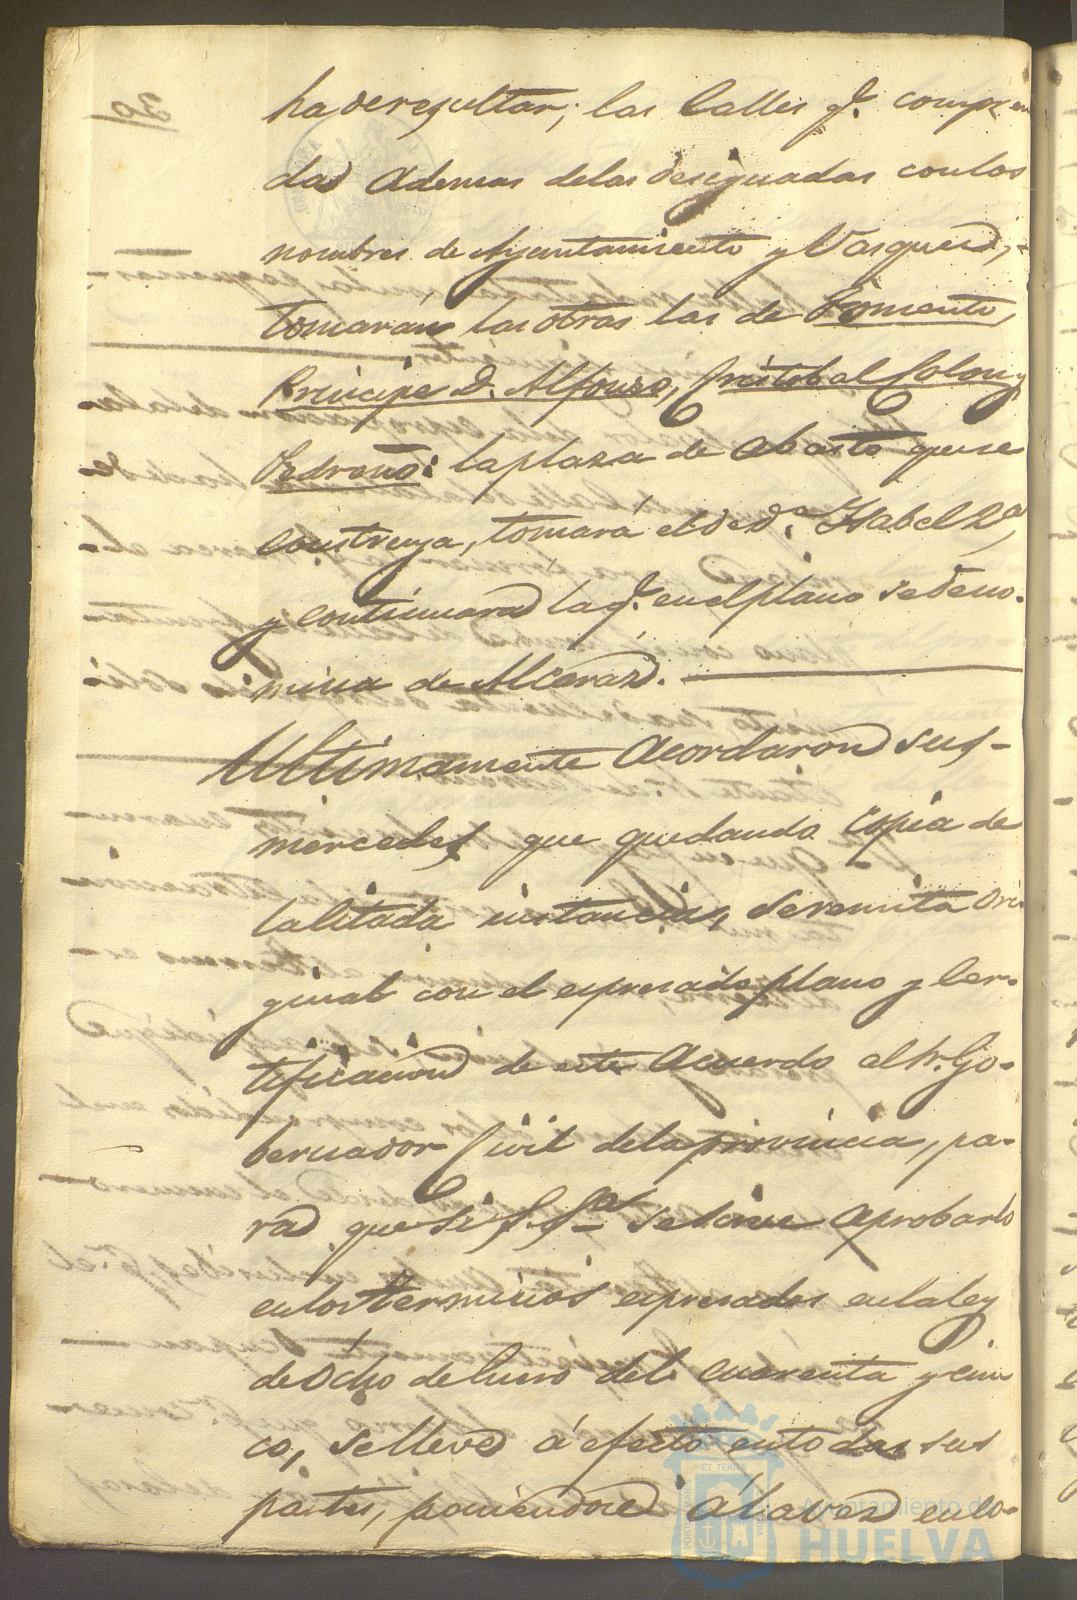 ha de resultar; las Calles q.e compren
das Ademas delas designadas con los
nombres de Ayuntamiento y Vasquez,
tomarán las otras las de Fomento,
Principe D. Alfonso, Cristobal Colon y
Pedreño: la plaza de abasto que se
construya, tomará el de d.a Isabel 2.a,
y continuará la q.e en el plano se deno-
mina de Alcaraz.
Ultimamente Acordaron sus-
mercedes que quedando Copia de
la litada instancia, se remita Ori
ginal con el espresado plano y Cer-
tificacion de este Acuerdo al Sr. Go-
bernador Civil de la provincia, pa-
ra que si S. S.a se sirve Aprobarlo
en los terminos espresados en la ley
de Ocho de Enero del cuarenta y cin
co, se lleve á efecto en todas sus
partes, poniendose á la vez en co-
Ayuntamiento de
HUELVA